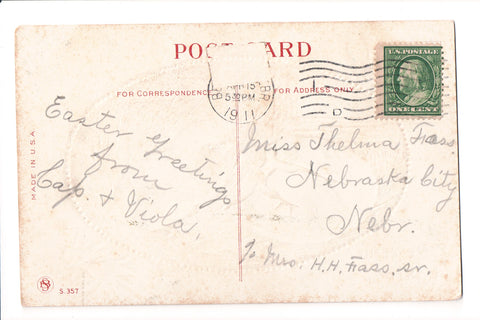 POST CARD
FOR CORRESPONDENCE
FOR ADDRESS ONLY
5-PM
1911
D
U.S. POSTAGE
ONE CENT
Easter Greetings
from
Cap. & Viola.
Miss Thelma Fass.
Nebraska City
Nebr.
To Mrs. H.H. Fass, sr.
MADE IN U.S.A.
S. 357